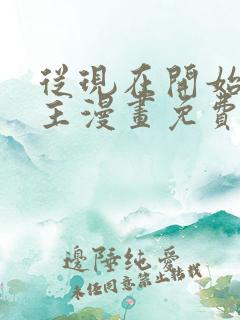 從現在開始
王漫畫免費
邊陲純愛
未經同意禁止轉載